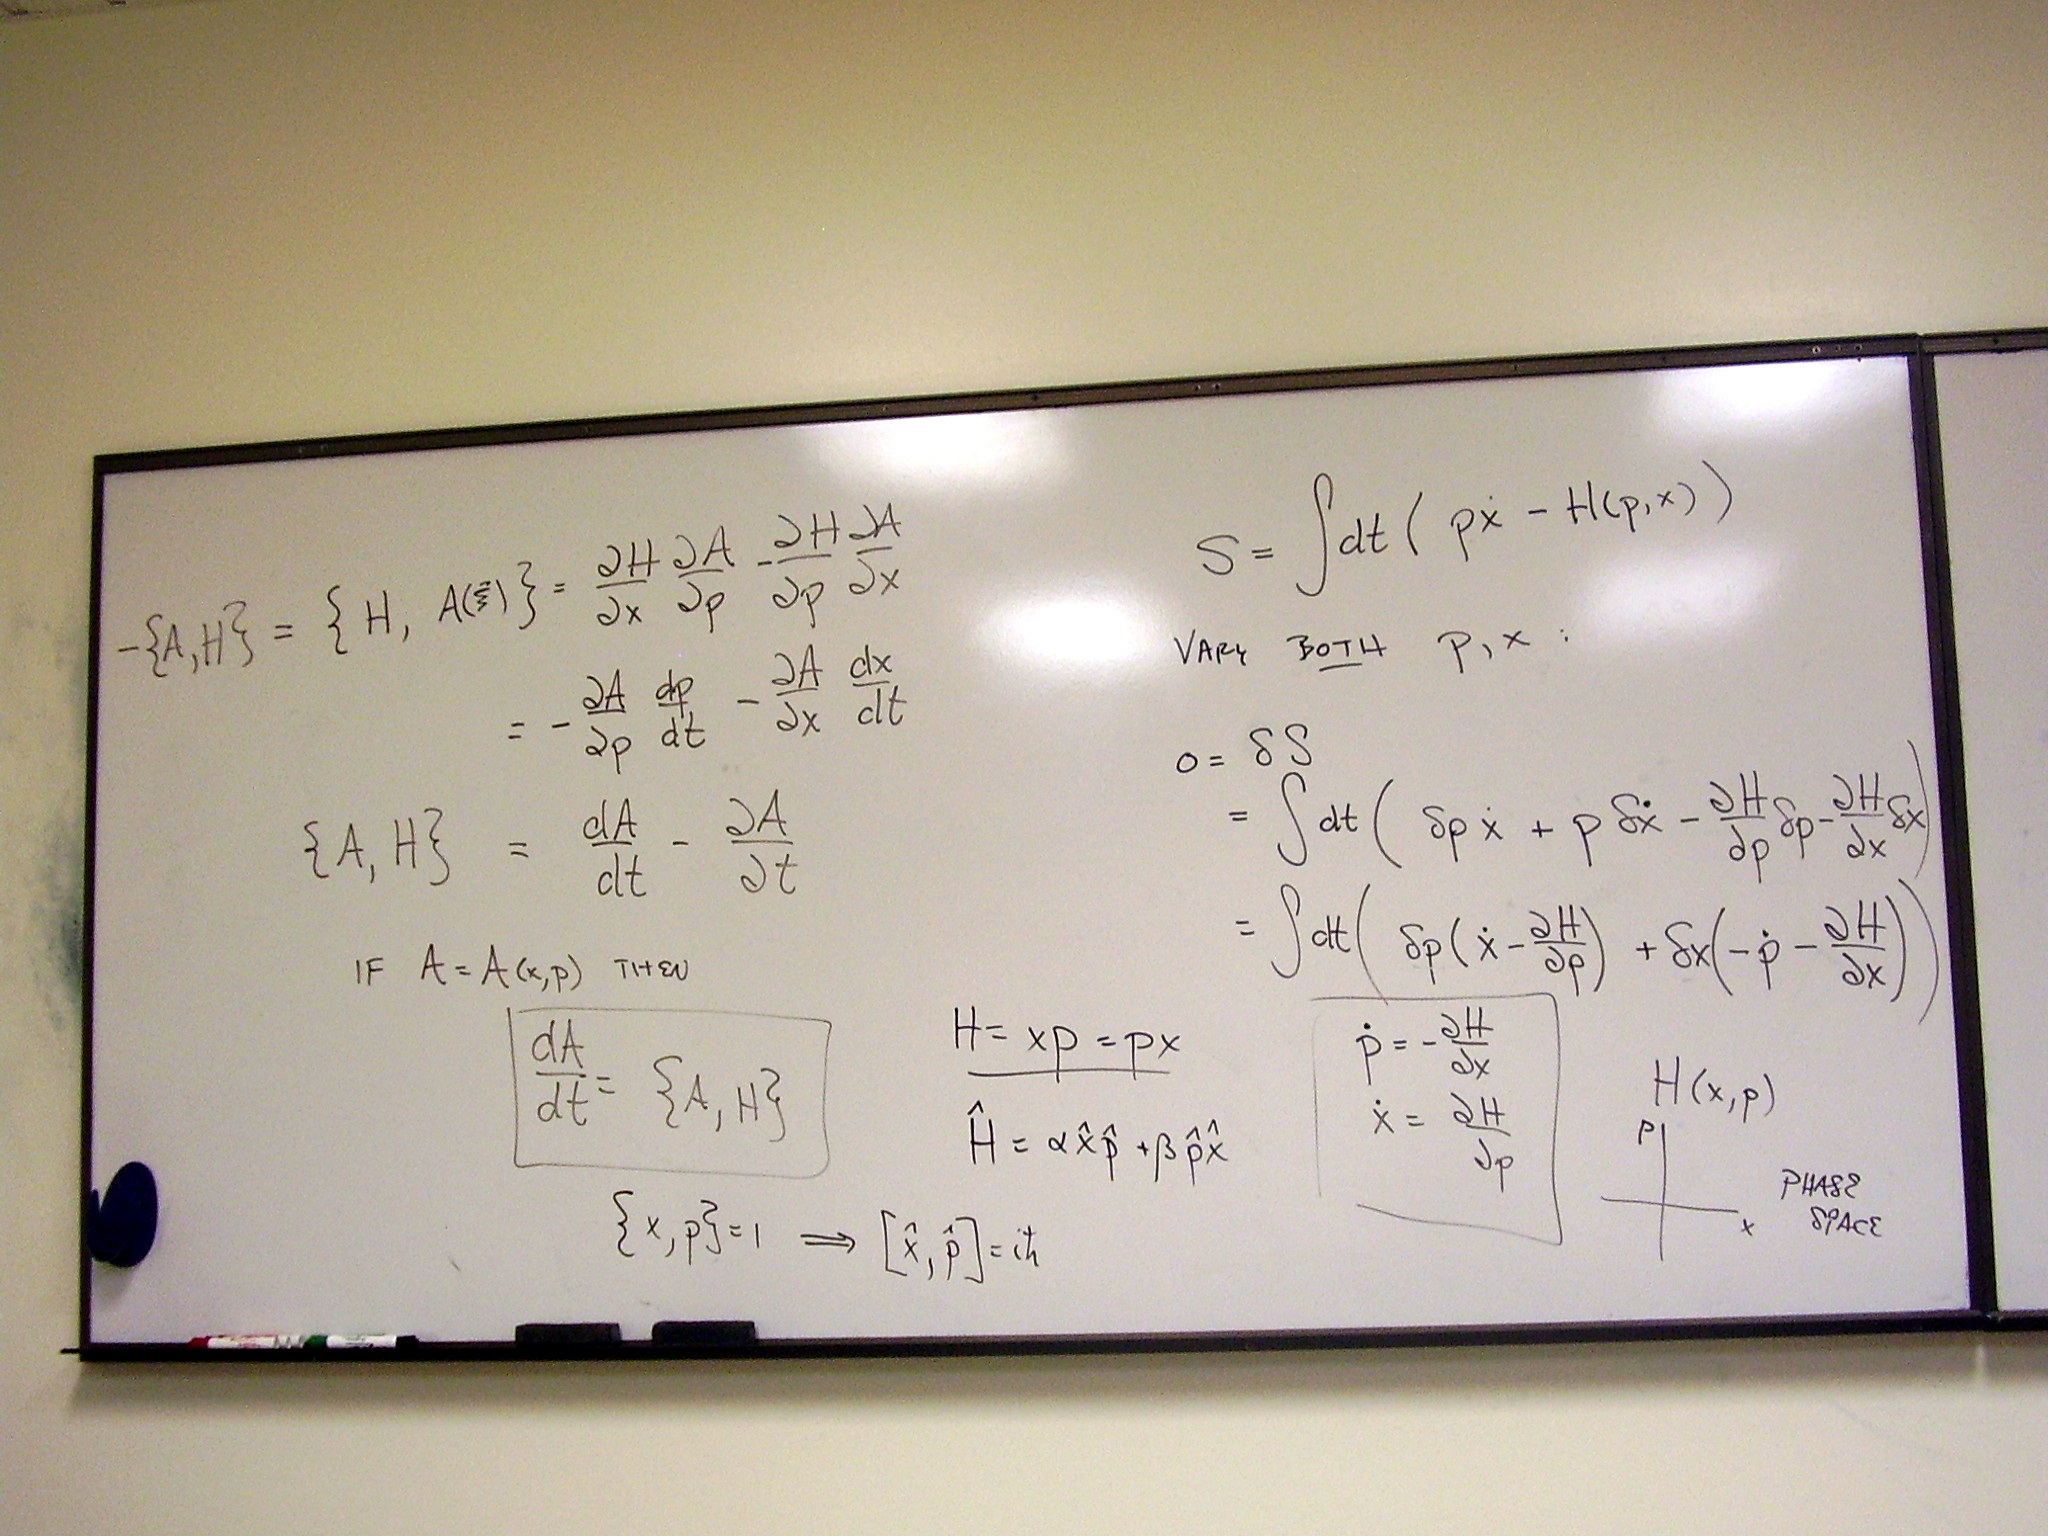 -{A,H} = {H, A(ξ⃗)} = ∂H/∂x ∂A/∂p - ∂H/∂p ∂A/∂x
= - ∂A/∂p dp/dt - ∂A/∂x dx/dt
{A,H} = dA/dt - ∂A/∂t
IF A = A(x,p) THEN
dA/dt = {A,H}
H = xp = px
Ĥ = αx̂p̂ + βp̂x̂
{x,p} = 1 ⟹ [x̂,p̂] = iħ
S = ∫dt ( pẋ - H(p,x) )
VARY BOTH p, x :
0 = δS
= ∫dt ( δp ẋ + p δẋ - ∂H/∂p δp - ∂H/∂x δx )
= ∫dt ( δp(ẋ - ∂H/∂p) + δx(-ṗ - ∂H/∂x) )
ṗ = - ∂H/∂x
ẋ = ∂H/∂p
H(x,p)
p
x
PHASE
SPACE